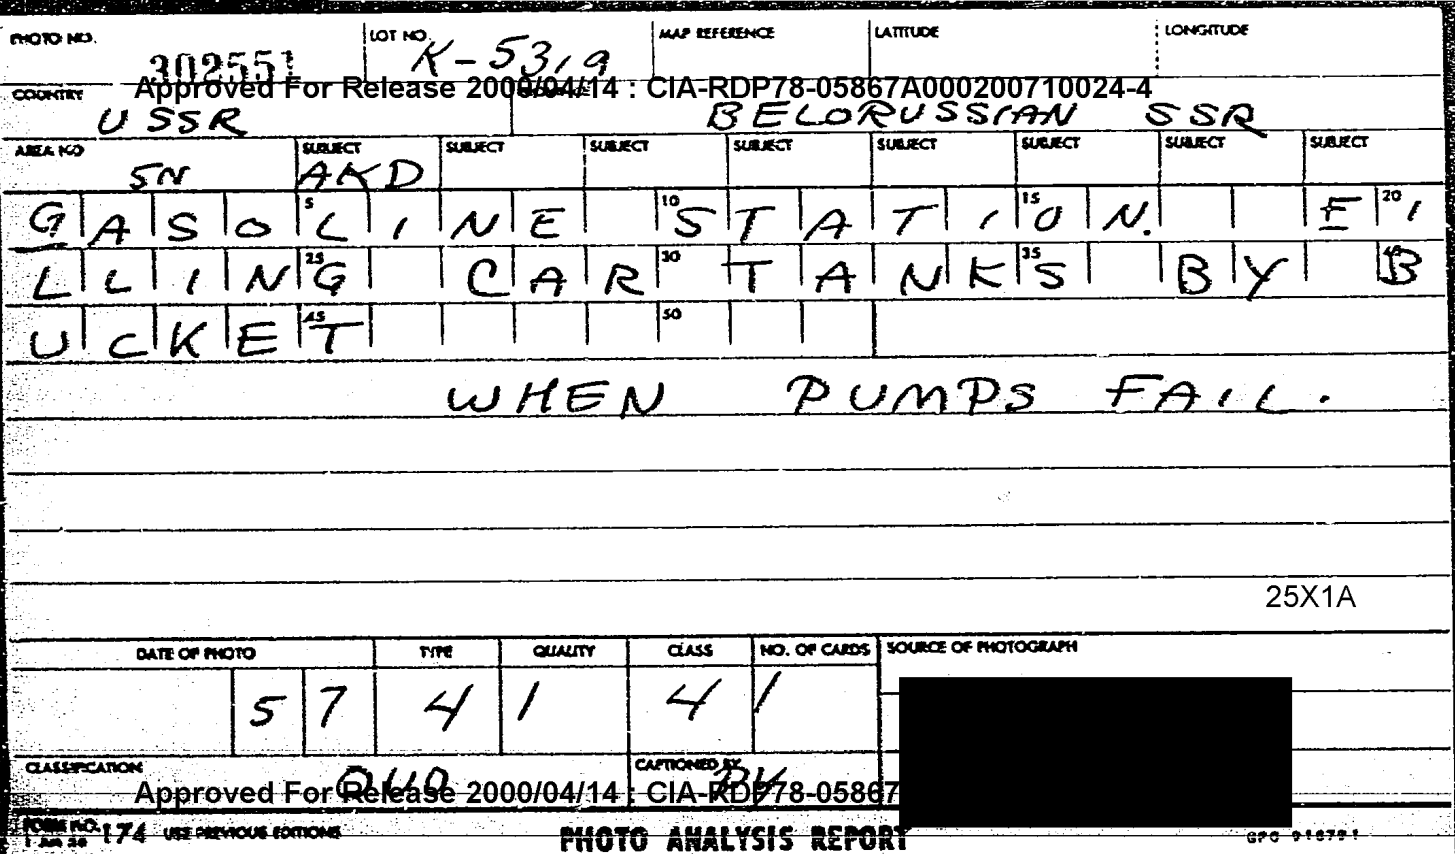 PHOTO NO. LOT NO. MAP REFERENCE LATITUDE LONGITUDE
302551 K-5319
Approved For Release 2000/04/14 : CIA-RDP78-05867A000200710024-4
COUNTRY
USSR BELORUSSIAN SSR
AREA NO SUBJECT SUBJECT SUBJECT SUBJECT SUBJECT SUBJECT SUBJECT SUBJECT
5N AKD
5 10 15 20
GASOLINE STATION. FI
25 30 35
LLING CAR TANKS BY B
45 50
UCKET
WHEN PUMPS FAIL.
25X1A
DATE OF PHOTO TYPE QUALITY CLASS NO. OF CARDS SOURCE OF PHOTOGRAPH
57 4 1 4 1
CLASSIFICATION CAPTIONED BY
OUO
Approved For Release 2000/04/14 : CIA-RDP78-05867
FORM NO. 174 USE PREVIOUS EDITIONS PHOTO ANALYSIS REPORT